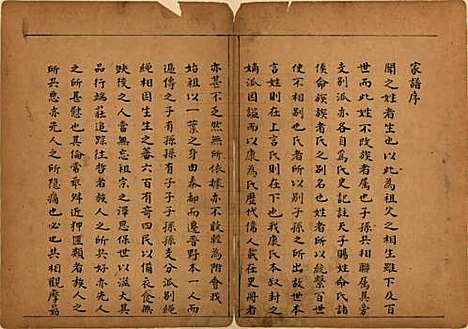 家譜序
聞之姓者生也以此為祖父之相生雖下及百
世而此姓不改族者屬也子孫共相聯屬其旁
支別派亦各自為氏史記註天子賜姓命氏諸
侯命族族者氏之別名也姓者所以繫百世
使不相別也氏者所以別子孫之所出故世本
言姓則在上言氏則在下也我康氏本叔封之
嫡派因謚而以康為氏歷代偉人載在史冊者
亦甚不乏然無所依據亦不敢輕為附會我
始祖以一葦之身由秦郡而邊晉野本一人而
遞傳之子有孫孫有子子子孫孫支分派別繩
繩相因生生之蕃六百有奇四民以備衣食無
缺後之人當無忘祖宗之澤思保世以滋大其
品行端莊追踪往哲者我人之所共好亦先人
之所甚慰也其倫常乖舛近狎匪類者族人之
所共惡亦先人之所隱痛也凡我同族共相觀摩